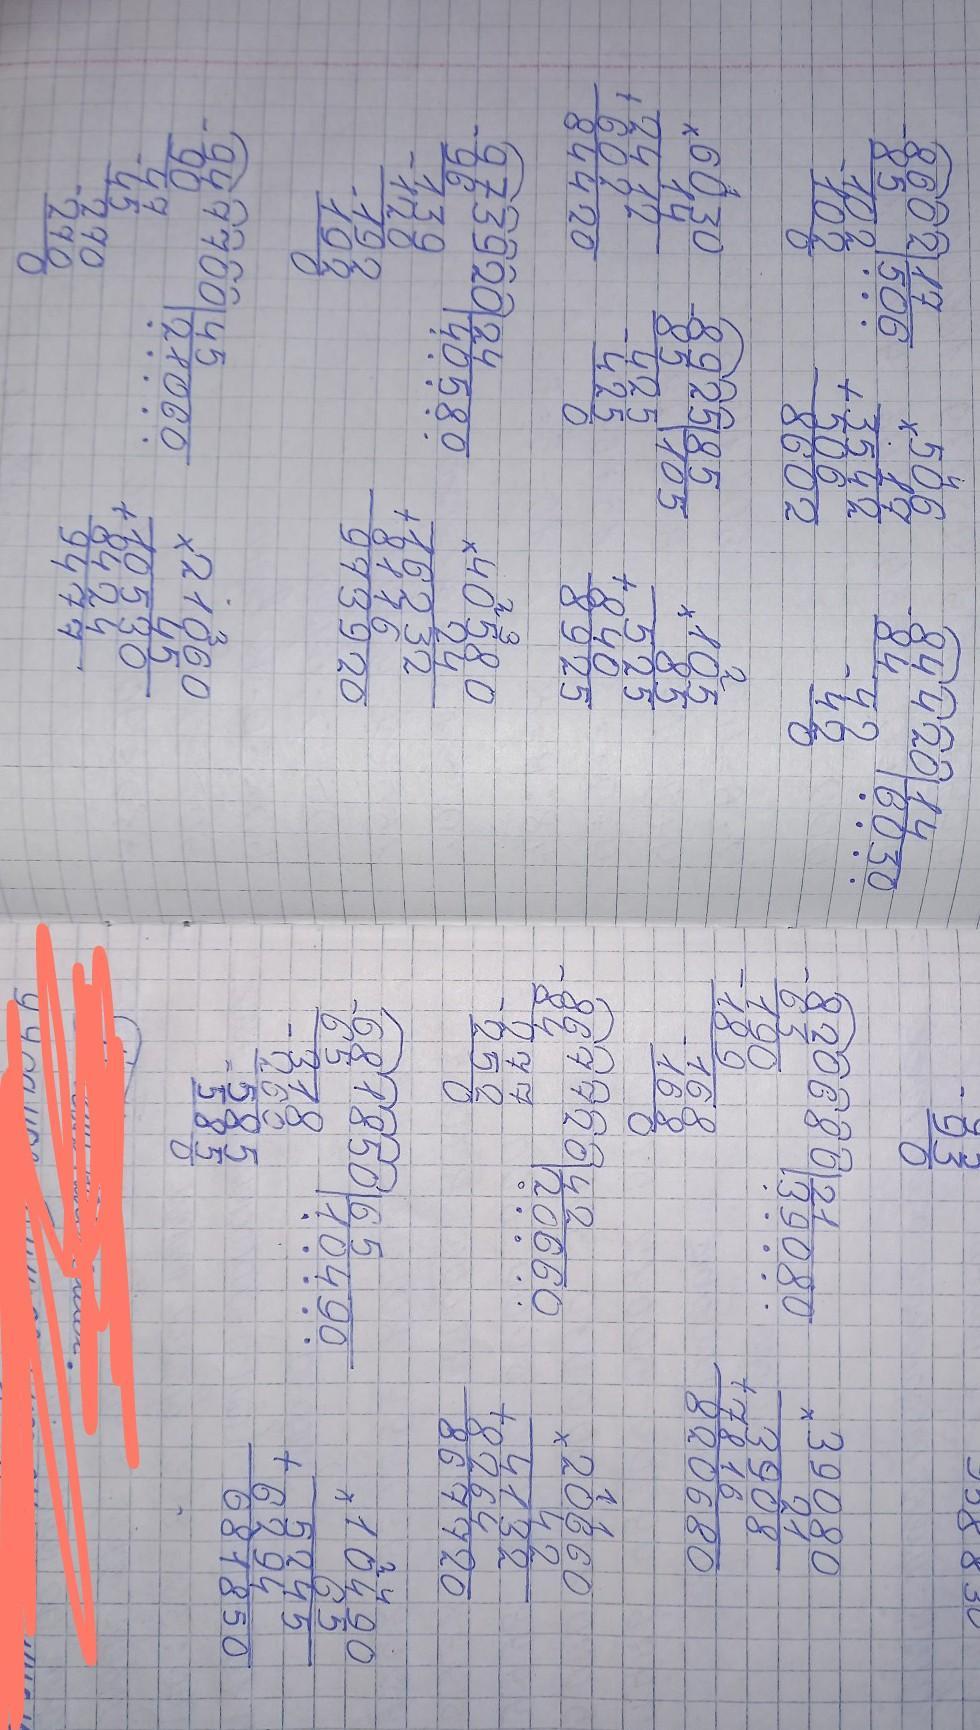 -8602|17 ×506 -84420|14
85 |506 17 84 |6030
-102 3542 -42
102 +506 42
0 8602 0
×6030 -8925|85 ×105
14 85 |105 85
2412 -425 525
+603 425 +840
84420 0 8925
-973920|24 ×40580
96 |40580 24
-139 16232
120 +8116
-192 973920
192
0
-947700|45 ×21060
90 |21060 45
-47 10530
45 +8424
-270 9477
270
0
-93
0
-820680|21 ×39080
63 |39080 21
-190 3908
-189 +7816
-168 820680
168
0
-867720|42 ×20660
84 |20660 42
-277 4132
252 +8264
0 867720
-681850|65 ×10490
65 |10490 65
-318 5245
260 +6294
-585 681850
585
0